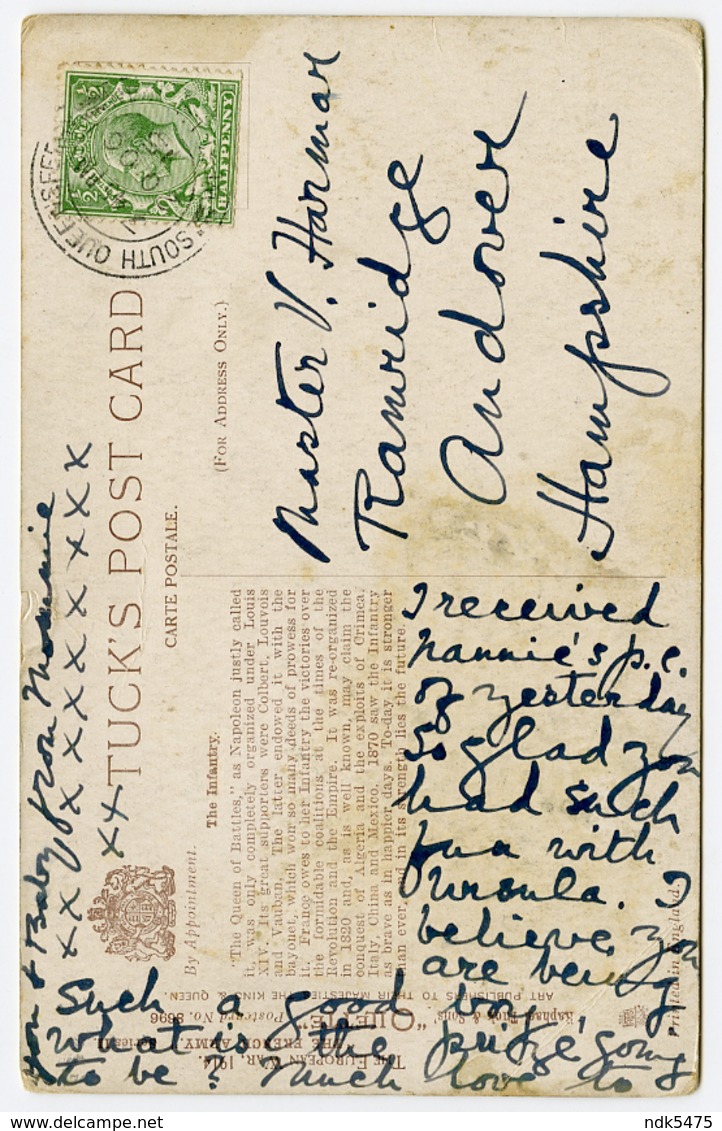 TUCK'S POST CARD
CARTE POSTALE.
(FOR ADDRESS ONLY.)
By Appointment.
HALFPENNY
1/2
1/2
SOUTH QUEENSFERRY
Master V. Harmar
Ramridge
Andover
Hampshire
The Infantry.
"The Queen of Battles," as Napoleon justly called
it, was only completely organized under Louis
XIV. Its great supporters were Colbert, Louvois
and Vauban. The latter endowed it with the
bayonet, which won so many deeds of prowess for
it. France owes to her Infantry the victories over
the formidable coalitions at the times of the
Revolution and the Empire. It was re-organized
in 1820 and, as is well known, may claim the
conquest of Algeria and the exploits of Crimea,
Italy, China and Mexico. 1870 saw the Infantry
as brave as in happier days. To-day it is stronger
than ever, and in its strength lies the future.
I received
Nannie's p.c.
of yesterday
So glad you
had such
fun with
Ursula. I
believe you
are being
Such a good boy,
What is the prize going
to be? Much love to
you & Baby from Mommie
xx x x x x x x x x
xx
THE EUROPEAN WAR, 1914
THE FRENCH ARMY. Series II.
"OILETTE" Postcard No. 8696
Raphael Tuck & Sons'
ART PUBLISHERS TO THEIR MAJESTIES THE KING & QUEEN.
Printed in England.
delcampe.net
ndk5475